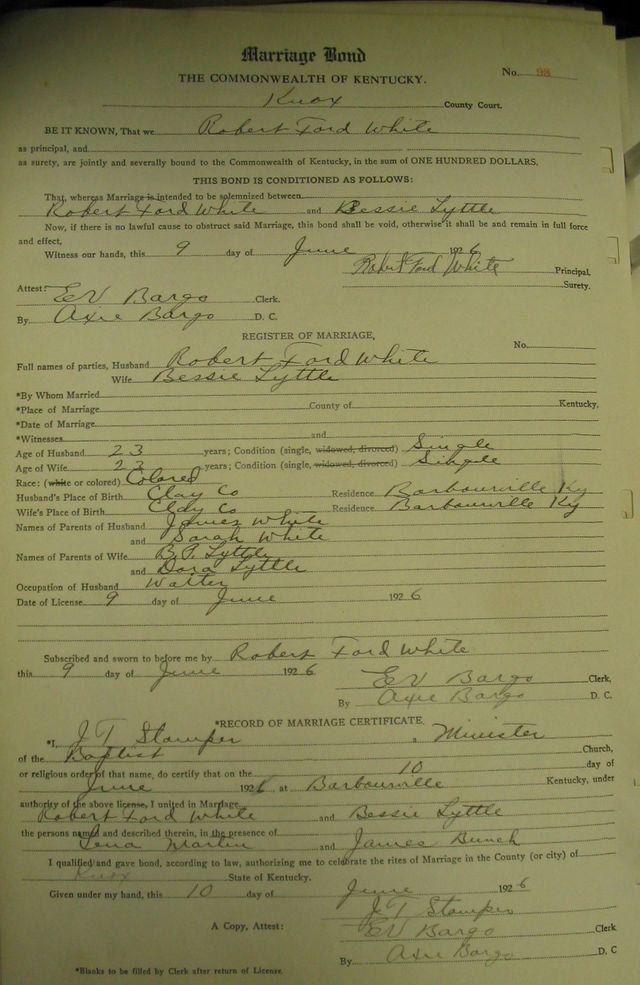 Marriage Bond
THE COMMONWEALTH OF KENTUCKY.
No. 98
Knox County Court.
BE IT KNOWN, That we Robert Ford White
as principal, and
as surety, are jointly and severally bound to the Commonwealth of Kentucky, in the sum of ONE HUNDRED DOLLARS.
THIS BOND IS CONDITIONED AS FOLLOWS:
That, whereas Marriage is intended to be solemnized between
Robert Ford White and Bessie Lyttle
Now, if there is no lawful cause to obstruct said Marriage, this bond shall be void, otherwise it shall be and remain in full force
and effect,
Witness our hands, this 9 day of June 1926
Robert Ford White Principal,
Surety.
Attest: E V Bargo Clerk.
By Axie Bargo D. C.
REGISTER OF MARRIAGE,
No.
Full names of parties, Husband Robert Ford White
Wife Bessie Lyttle
*By Whom Married
*Place of Marriage County of Kentucky,
*Date of Marriage
*Witnesses and
Age of Husband 23 years; Condition (single, widowed, divorced) Single
Age of Wife 23 years; Condition (single, widowed, divorced) Single
Race: (white or colored) Colored
Husband's Place of Birth Clay Co Residence Barbourville Ky
Wife's Place of Birth Clay Co Residence Barbourville Ky
Names of Parents of Husband James White
and Sarah White
Names of Parents of Wife B.P. Lyttle
and Dora Lyttle
Occupation of Husband Waiter
Date of License 9 day of June 1926
Subscribed and sworn to before me by Robert Ford White
this 9 day of June 1926
E V Bargo Clerk,
By Axie Bargo D. C.
*RECORD OF MARRIAGE CERTIFICATE.
*I, J T Stamper, Minister
of the Baptist Church,
or religious order of that name, do certify that on the 10 day of
June 1926, at Barbourville Kentucky, under
authority of the above license, I united in Marriage
Robert Ford White and Bessie Lyttle
the persons named and described therein, in the presence of
Lena Martin and James Bunch
I qualified and gave bond, according to law, authorizing me to celebrate the rites of Marriage in the County (or city) of
Knox State of Kentucky.
Given under my hand, this 10 day of June 1926
J T Stamper
A Copy, Attest: E V Bargo Clerk
By Axie Bargo D. C
*Blanks to be filled by Clerk after return of License.